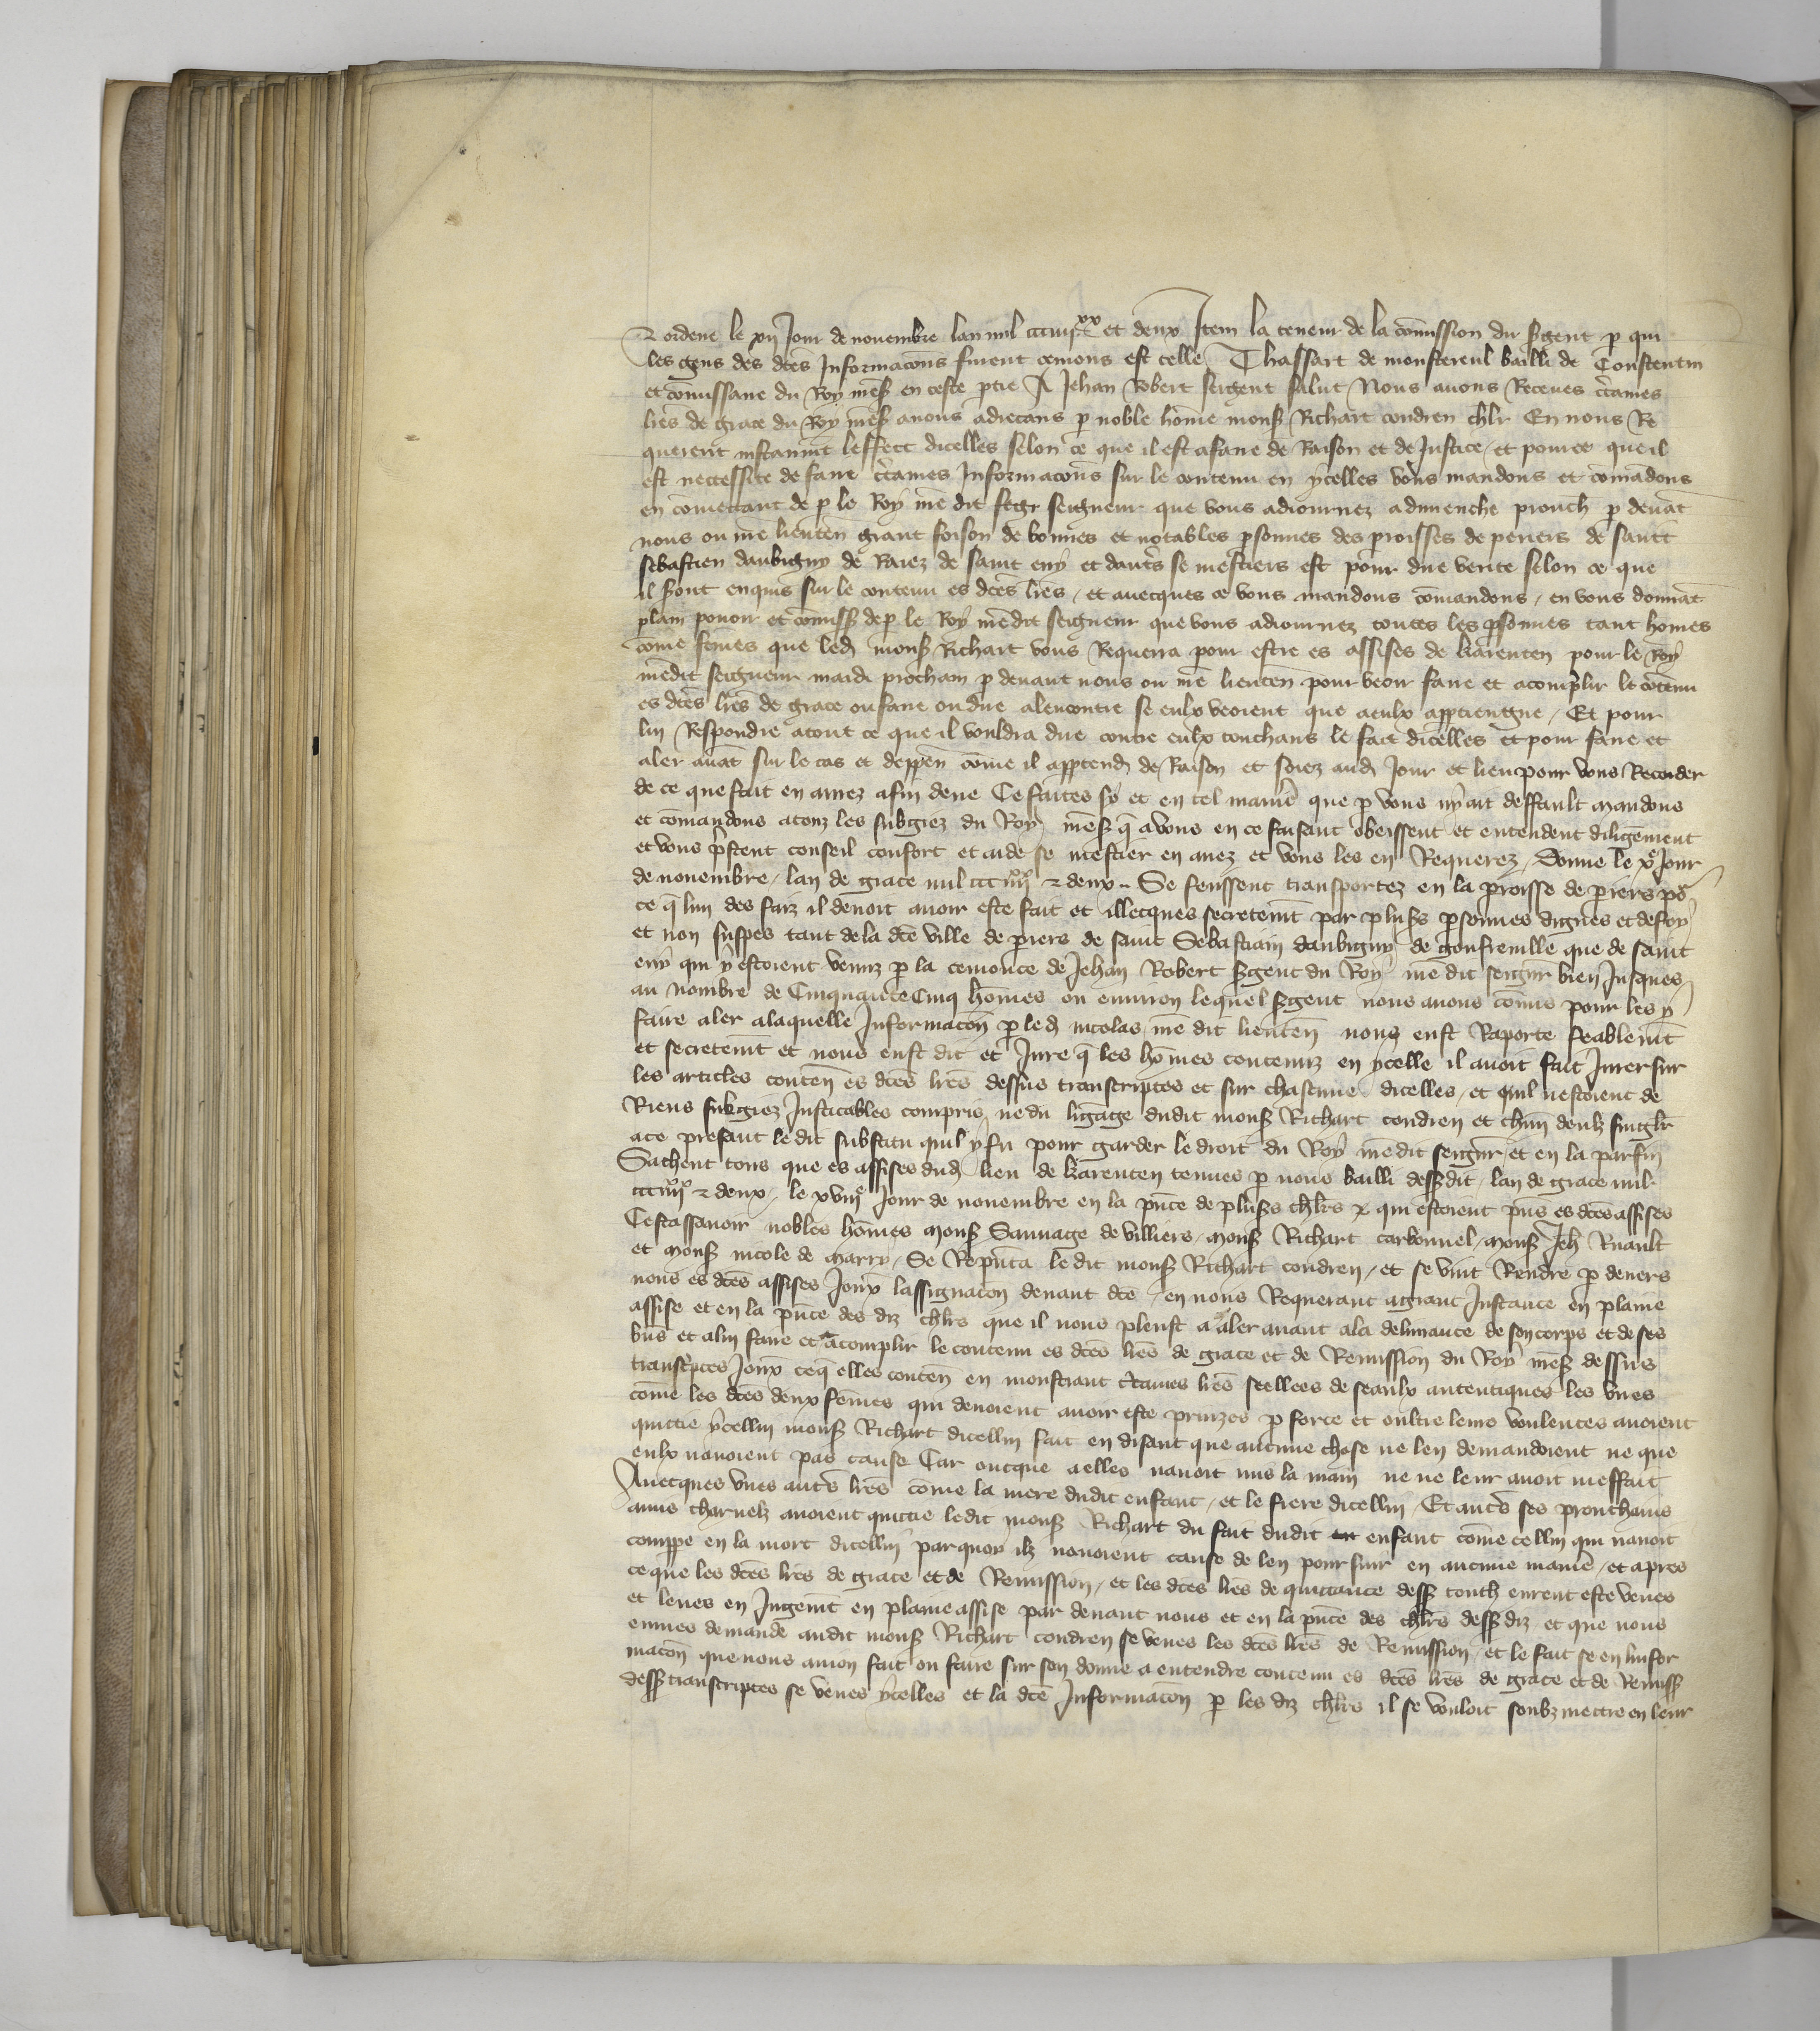 ⁊ ordene le xij Jour de novembre lan mil ccciiijxx et deux Item la teneur de la cōmission du sgent p qui
les gens des dcēs Informacōns furent cemons est celle Thassart de monstereul bailli de Constentin
et cōmissaire du Roy mēsʒ en ceste ptie A Jehan Robert sergent salut Nous avons Receues ctaines
lrēs de grace du Roy mēsʒ anous adrecans p noble hōme monsʒ Richart condren chlr En nous Re
querent instanmēt leffect dicelles selon ce que il est afaire de Raison et de Justice / et pource que il
est neccessite de faire ctaines Informacōns sur le contenu en ycelles vous mandons et cōmādons
en cōmettant de p le Roy me dit segr seigneur que vous adiournez adimenche prouch p devāt
nous ou mē lieutēn grant foison de bonnes et notables psonnes des proisses de periers de saint
sebastien daubigny de Raiez de saint eny et dauts se mestiers est pour dire verite selon ce que
il sont enquis sur le contenu es dcēs lrēs / et avecques ce vous mandons cōmandons / en vous donnāt
plain povoir et cōmissʒ de p le Roy mēdit seigneur que vous adiournez toutes les psonnes tant homes
cōme femes que led monsʒ Richart vous Requerra pour estre es assises de karenten pour le Roy
mēdit seigneur mardi prochain p devant nous ou mē lieutēn pour veoir faire et acomplir le cōtenu
es dcēs lrēs de grace ou faire ou dire alencontre se eulx veoient que aeulx apptiengne / Et pour
luy Respondre atout ce que il vouldra dire contre eulx touchans le fait dicelles et pour faire et
aler avāt sur le cas et deppen cōme il apptend de Raison et soiez aud Jour et lieu pour vous Recorder
de ce que fait en avrez afin deue Ce faites sy et en tel manie que p vous ny ait deffault Mandons
et cōmandons atouz les subgiez du Roy mēsʒ q avous en ce faisant obeissent et entendent diligēment
et vous pstent conseil confort et aide se mestier en avez et vous les en Requerez / Donne le xe Jour
de novembre / lan de grace mil ccciiijxx ⁊ deux / Se feussent transportez en la proisse de periers po
ce q lun des faiz il devoit avoir este fait et illecques secretemt par plusrs psonnes dignes et de foy
et non suspes tant de la dcē ville de periers de saint Sebastiain daubigny de gonfreville que de saint
eny qui y estoient venuz p la cemonce de Jehan Robert sgent du Roy mē dit seignr bien Jusques
au nombre de Cinquante Cinq hōmes ou environ lequel sgent nous avons cōmis pour les y
faire aler alaquelle Informacōn p led nicolas mē dit lieutēn nous eust Raporte feablemt
et secretemt et nous eust dit et Jure q les hōmes contenuz en ycelle il avoit fait Jurer sur
les articles contēn es dcēs lrēs dessus transcriptes et sur chascune dicelles / et quil nestoient de
Riens subgiez Justicables compris ne du lignage dudit monsʒ Richart condren et chūn deulx singlr
ace presant le dit substitu quil y fu pour garder le droit du Roy mē dit seignr et en la parfin
Sachent tous que es assises dud lieu de karenten tenues p nous bailli dessʒdit / lan de grace mil
ccciiijxx ⁊ deux / le xviije Jour de novembre en la pnce de plusrs chlrs ⁊ qui estoient pns es dcēs assises
Cestassavoir nobles hōmes Monsʒ Sauvage de villiers / Monsʒ Richart carbonnel / Monsʒ Jeh Ruault
et Monsʒ nicole de Marcy / Se Repnta le dit monsʒ Richart condren / et se vint Rendre p devers
nous es dcēs assises Joux lassignacōn devant dcē / en nous Requerant agrant Instance en plaine
assise et en la pnce des diz chlrs que il nous pleust a aler avant ala delivrance de son corps et de ses
biens et alui faire et acomplir le contenu es dcēs lrēs de grace et de Remission du Roy mēsʒ dessus
transcptes Joux ceq elles contēn en monstrant ctaines lrēs seellees de seaulx autentiques les unes
cōme les dcēs deux femes qui devoient avoir este prinzes p force et oultre leurs voulentes avoient
quictie ycellui monsʒ Richart dicellui fait en disant que aucune chose ne len demandoient ne que
eulx navoient pas cause Car oncque aelles navoit mis la main ne ne leur avoit meffait
Avecques unes auts lrēs cōme la mere dudit enfant / et le frere dicellui / Et auts ses prouchains
amis charnelz avoient quictie ledit monsʒ Richart du fait dudit en enfant cōme cellui qui navoit
couppe en la mort dicellui parquoy ilz navoient cause de len poursuir en aucune manie / et apres
ce que les dcēs lrēs de grace et de Remission / et les dcēs lrēs de quictance dessʒ touch eurent este veues
et leues en Jugemt en plaine assise par devant nous et en la pnce des chlrs dessʒ diz et que nous
eumes demande audit monsʒ Richart condren se veues les dcēs lrēs de Remission / et le fait se en linfor
macōn que nous avion fait ou faire sur son donne a entendre contenu es dcēs lrēs de grace et de Remissʒ
dessʒ transcriptes se veues ycelles et la dcē Informacōn p les diz chlrs il se vouloit soubz mectre en leur